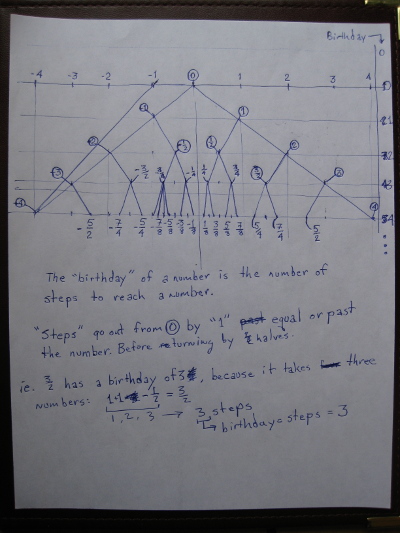 Birthday →
0
-4 -3 -2 -1 0 1 2 3 4
-1 1
-2 -1/2 1/2 2
-3 -3/2 3/2 3
-4 4
-5/2 -7/4 -5/4 -7/8 -5/8 -3/8 -1/8 1/8 3/8 5/8 7/8 5/4 7/4 5/2
The "birthday" of a number is the number of
steps to reach a number.
"Steps" go out from 0 by "1" past equal or past
the number. Before returning by ½ halves.
ie. 3/2 has a birthday of 3, because it takes three
numbers: 1+1-1/2 = 3/2
1, 2, 3 → 3 steps
↳ birthday = steps = 3